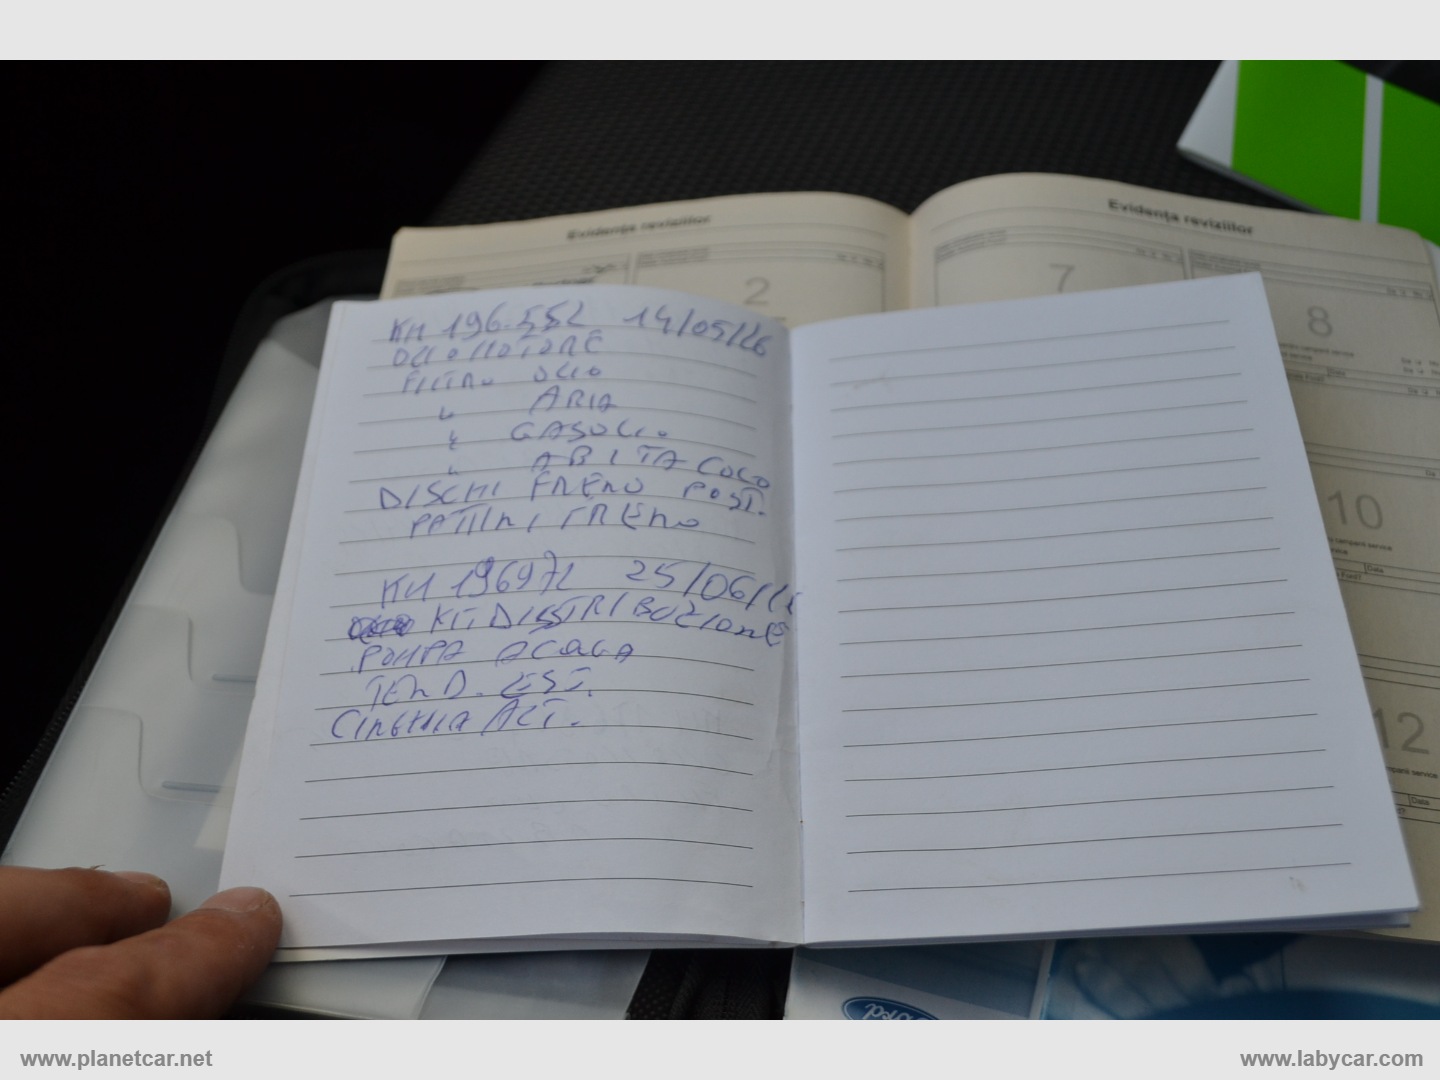 Evidența reviziilor
Evidența reviziilor
2
7
8
10
12
Date
Date
KM 196.552 14/05/26
OLIO MOTORE
FILTRO OLIO
" ARIA
" GASOLIO
" ABITACOLO
DISCHI FRENO POST.
PATTINI FRENO
KM 196972 25/06/
KIT DISTRIBUZIONE
POMPA ACQUA
TEND. EST.
CINGHIA ALT.
Ford
www.planetcar.net
www.labycar.com